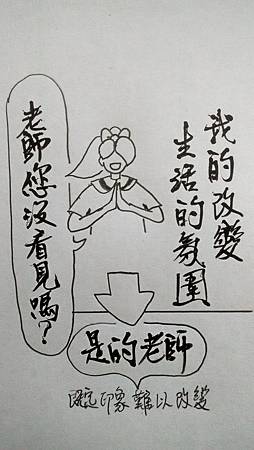 我的改變
生活的氛圍
老師您沒看見嗎？
是的老師
固定印象難以改變